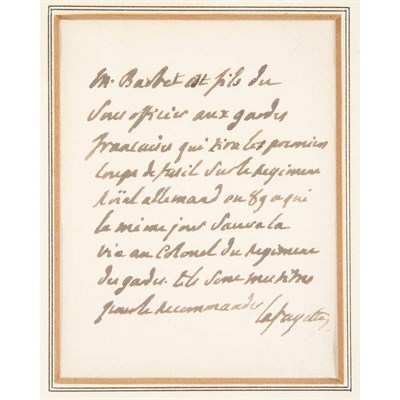 M. Barbet est fils du
Sous officier aux gardes
francaises qui tira les premiers
coups de fusil sur le Regiment
Roïal allemand en 89 qui
le meme jour sauva la
vie au Colonel du Regiment
des gardes. tels sont mes titres
pour le recommander Lafayette